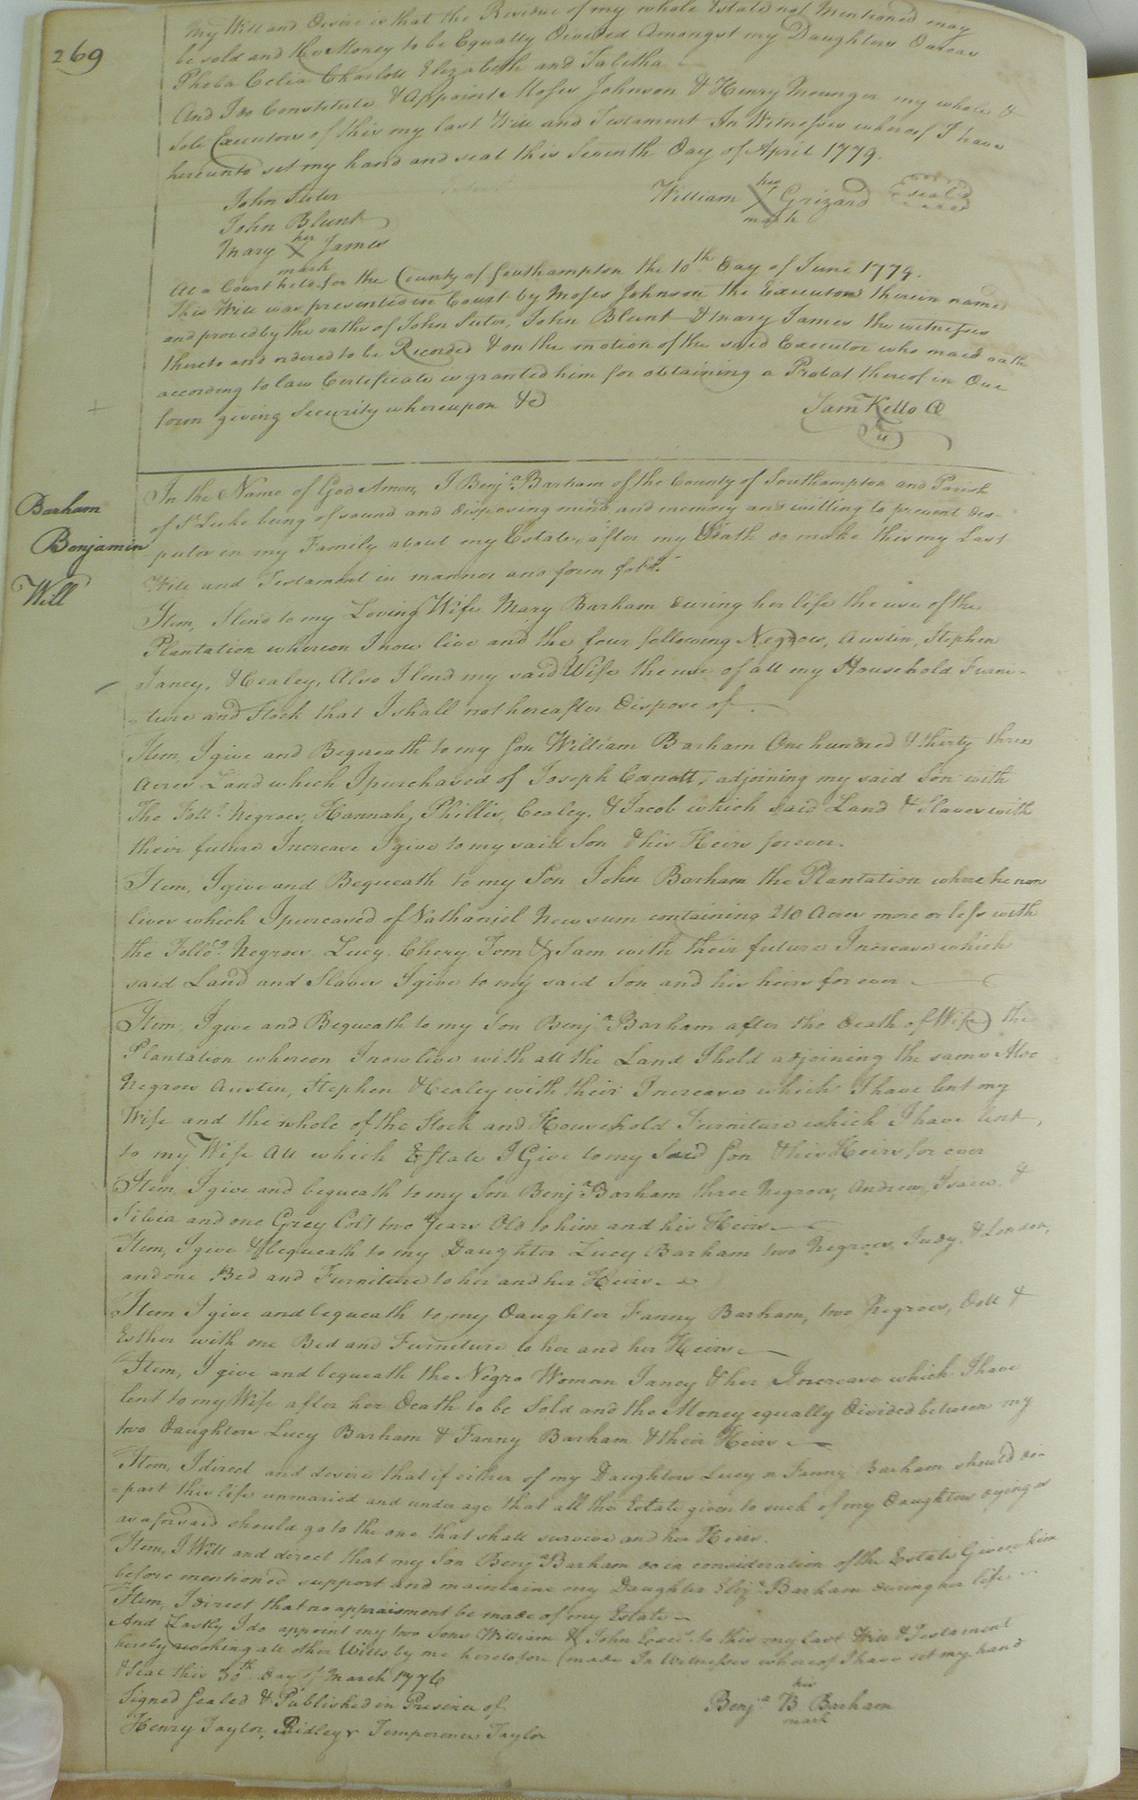 269
My Will and Desire is that the Residue of my whole Estate not Mentioned may
be sold and the Money to be Equally Divided Amongst my Daughters Darcas
Pheba Celia Charlott Elizabeth and Tabitha
And I do Constitute & Appoint Moses Johnson & Henry Mounger my whole &
Sole Executors of this my last Will and Testament In Witness whereof I have
hereunto set my hand and seal this Seventh Day of April 1779.
John Suter
John Blunt
Mary her X James
mark
William his X Grizard seal
mark
At a Court held for the County of Southampton the 10th Day of June 1779.
This Will was presented in Court by Moses Johnson the Executor therein named
and proved by the oaths of John Suter, John Blunt & Mary James the witnesses
thereto and ordered to be Recorded & on the motion of the said Executor who made oath
according to law Certificate is granted him for obtaining a Probat thereof in Due
form giving Security whereupon &c
Sam Kello
Barham
Benjamin
Will
In the Name of God Amen, I Benja Barham of the County of Southampton and Parish
of St Luke being of sound and disposing mind and memory and willing to prevent dis-
putes in my Family about my Estate after my Death do make this my Last
Will and Testament in manner and form follg.
Item, I lend to my Loving Wife Mary Barham during her life the use of the
Plantation whereon I now live and the four following Negroes, Austin, Stephen
Janey, & Healey, Also I lend my said Wife the use of all my Household Furni-
ture and Stock that I shall not hereafter Dispose of.
Item, I give and Bequeath to my Son William Barham One hundred & thirty three
Acres Land which I purchased of Joseph adjoining my said Son with
The Follg. Negroes, Hannah, Phillis, Cealey, & Jacob which said Land & Slaves with
their future Increase I give to my said Son & his Heirs forever.
Item, I give and Bequeath to my Son John Barham the Plantation where he now
lives which I purcased of Nathaniel Newsum containing 210 Acres more or less with
the Follog. Negroes Lucy Chery Tom & Sam with their future Increase which
said Land and Slaves I give to my said Son and his heirs for ever.
Item, I give and Bequeath to my Son Benja Barham after the death of Wife the
Plantation whereon I now live with all the Land I hold adjoining the same Also
Negroes Austin, Stephen & Healey with their Increase which I have lent my
Wife and the whole of the Stock and Household Furniture which I have lent,
to my Wife All which Estate I Give to my said Son & his Heirs for ever
Item, I give and bequeath to my Son Benja Barham three Negroes, Andrew, Isaac, &
Silvia and one Grey Colt two Years Old to him and his Heirs
Item, I give & bequeath to my Daughter Lucy Barham two Negroes, Judy, & London,
and one Bed and Furniture to her and her Heirs.
Item I give and bequeath to my Daughter Fanny Barham, two Negroes, Doll &
Esther with one Bed and Furniture to her and her Heirs
Item, I give and bequeath the Negro Woman Janey & her Increase which I have
lent to my Wife after her Death to be Sold and the Money equally Divided between my
two Daughters Lucy Barham & Fanny Barham & their Heirs
Item, I direct and desire that if either of my Daughters Lucy or Fanny Barham should de-
-part this life unmaried and under age that all the Estate given to such of my Daughters dying as
as aforsaid should go to the one that shall survive and her Heirs.
Item, I Will and direct that my Son Benja Barham do in consideration of the Estate Given him
before mentioned support and maintaine my Daughter Eliza Barham during her life
Item, I direct that no appraisment be made of my Estate
And Lastly I do appoint my two Sons William & John Execrs to this my last Will & Testament
hereby revoking all other Wills by me heretofore made In Witness whereof I have set my hand
& Seal this 30th day of March 1776
Signed Sealed & Published in Presence of
Henry Taylor, Ridley & Temperance Taylor
Benja his B Barham
mark